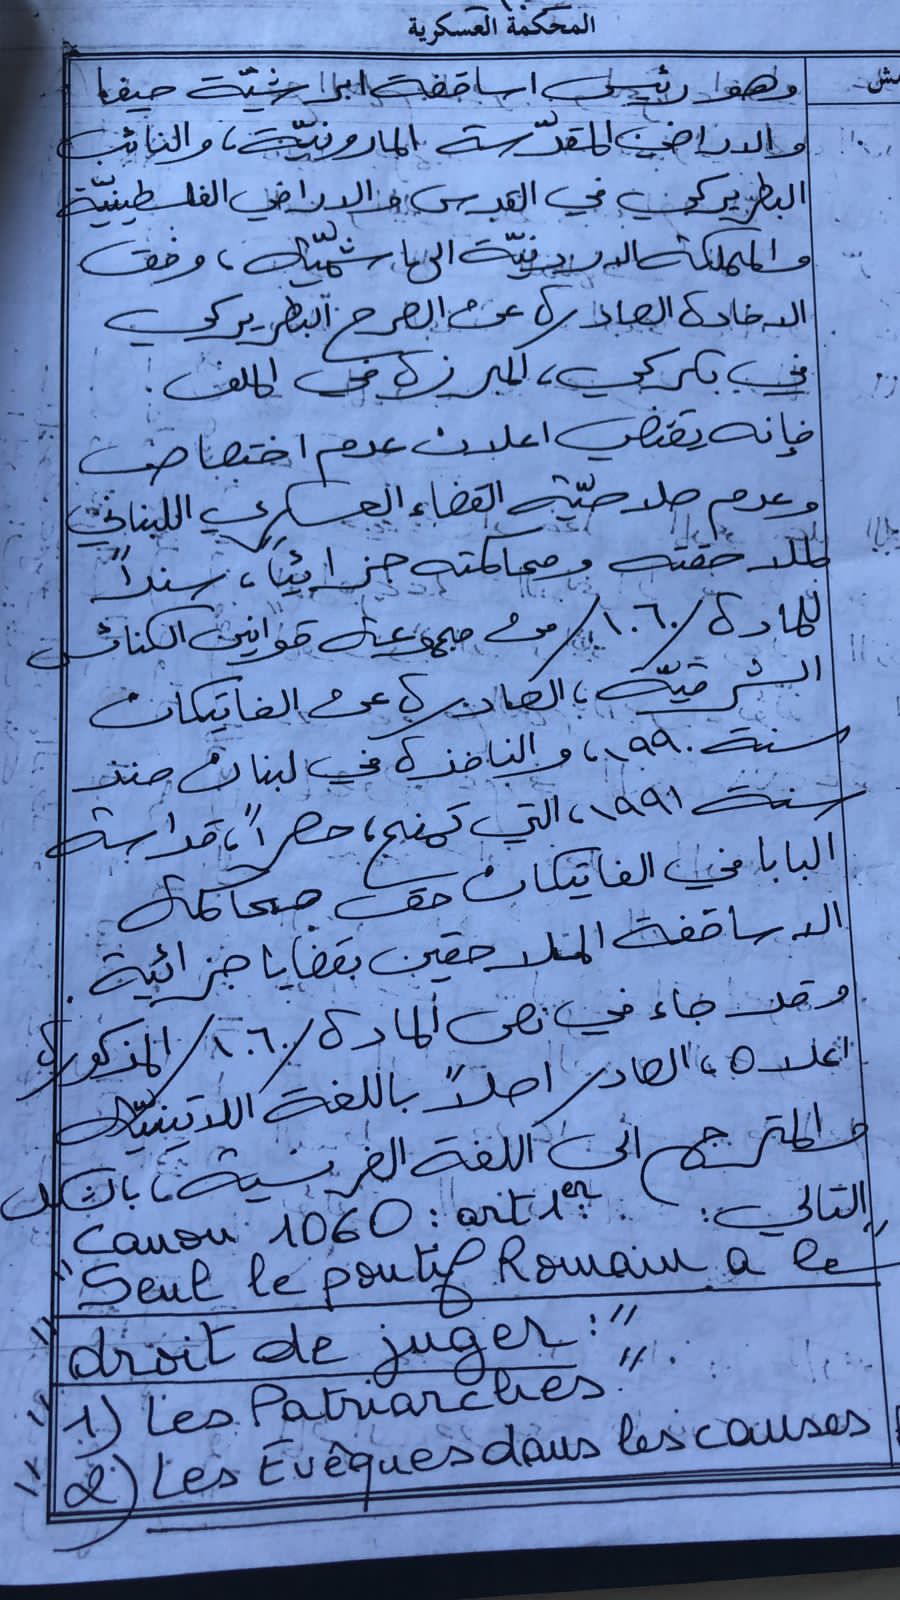 المحكمة العسكرية
وهو رئيس اساقفة ابرشيّة حيفا
والاراضي المقدّسة المارونيّة، والنائب
البطريركي في القدس والاراضي الفلسطينيّة
والمملكة الاردنيّة الهاشميّة، وفق
الافادة الصادرة عن الصرح البطريركي
في بكركي، المبرزة في الملف.
فإنه يقتضي اعلان عدم اختصاص
وعدم صلاحيّة القضاء العسكري اللبناني
لملاحقته ومحاكمته جزائيّاً، سنداً
للمادة /١٠٦٠/ من مجموعة قوانين الكنائس
الشرقيّة، الصادرة عن الفاتيكان
سنة ١٩٩٠، والنافذة في لبنان منذ
سنة ١٩٩١، التي تمنح، حصراً، قداسة
البابا في الفاتيكان حق محاكمة
الاساقفة الملاحقين بقضايا جزائية.
وقد جاء في نص المادة /١٠٦٠/ المذكورة
اعلاه، الصادر اصلاً باللغة اللاتينيّة
والمترجم الى اللغة الفرنسية، بالشكل
التالي:
Canon 1060: art 1er:
"Seul le pontif Romain a le"
"droit de juger:"
"1) Les Patriarches."
"2) Les Evêques dans les causes